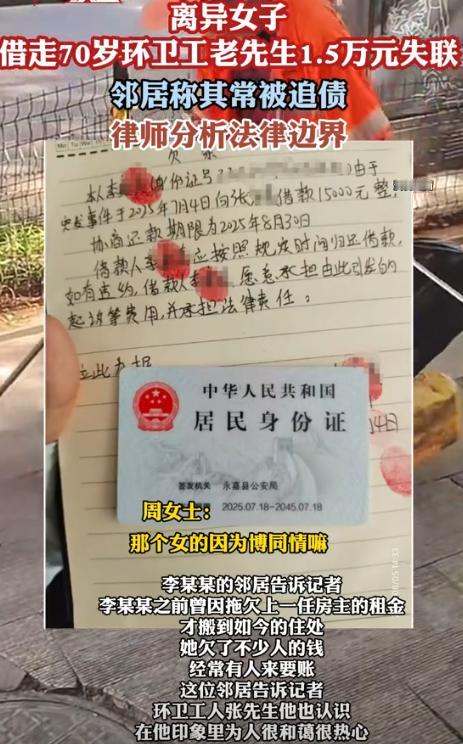 离异女子
借走70岁环卫工老先生1.5万元失联
邻居称其常被追债
律师分析法律边界
Mo Tu We Th Fr Sa Su
欠条
本人李 (身份证号 )由于
突发事件于2025年7月4日向张 借款15000元整,
协商还款期限为2025年8月30日
借款人李 应按照规定时间归还借款,
如有违约,借款人李 愿意承担由此引发的
起诉等费用,并承担法律责任。
立此为据
4日
中华人民共和国
居民身份证
签发机关 永嘉县公安局
期限 2025.07.18-2045.07.18
周女士:
那个女的因为博同情嘛
李某某的邻居告诉记者
李某某之前曾因拖欠上一任房主的租金
才搬到如今的住处
她欠了不少人的钱
经常有人来要账
这位邻居告诉记者
环卫工人张先生他也认识
在他印象里为人很和蔼很热心